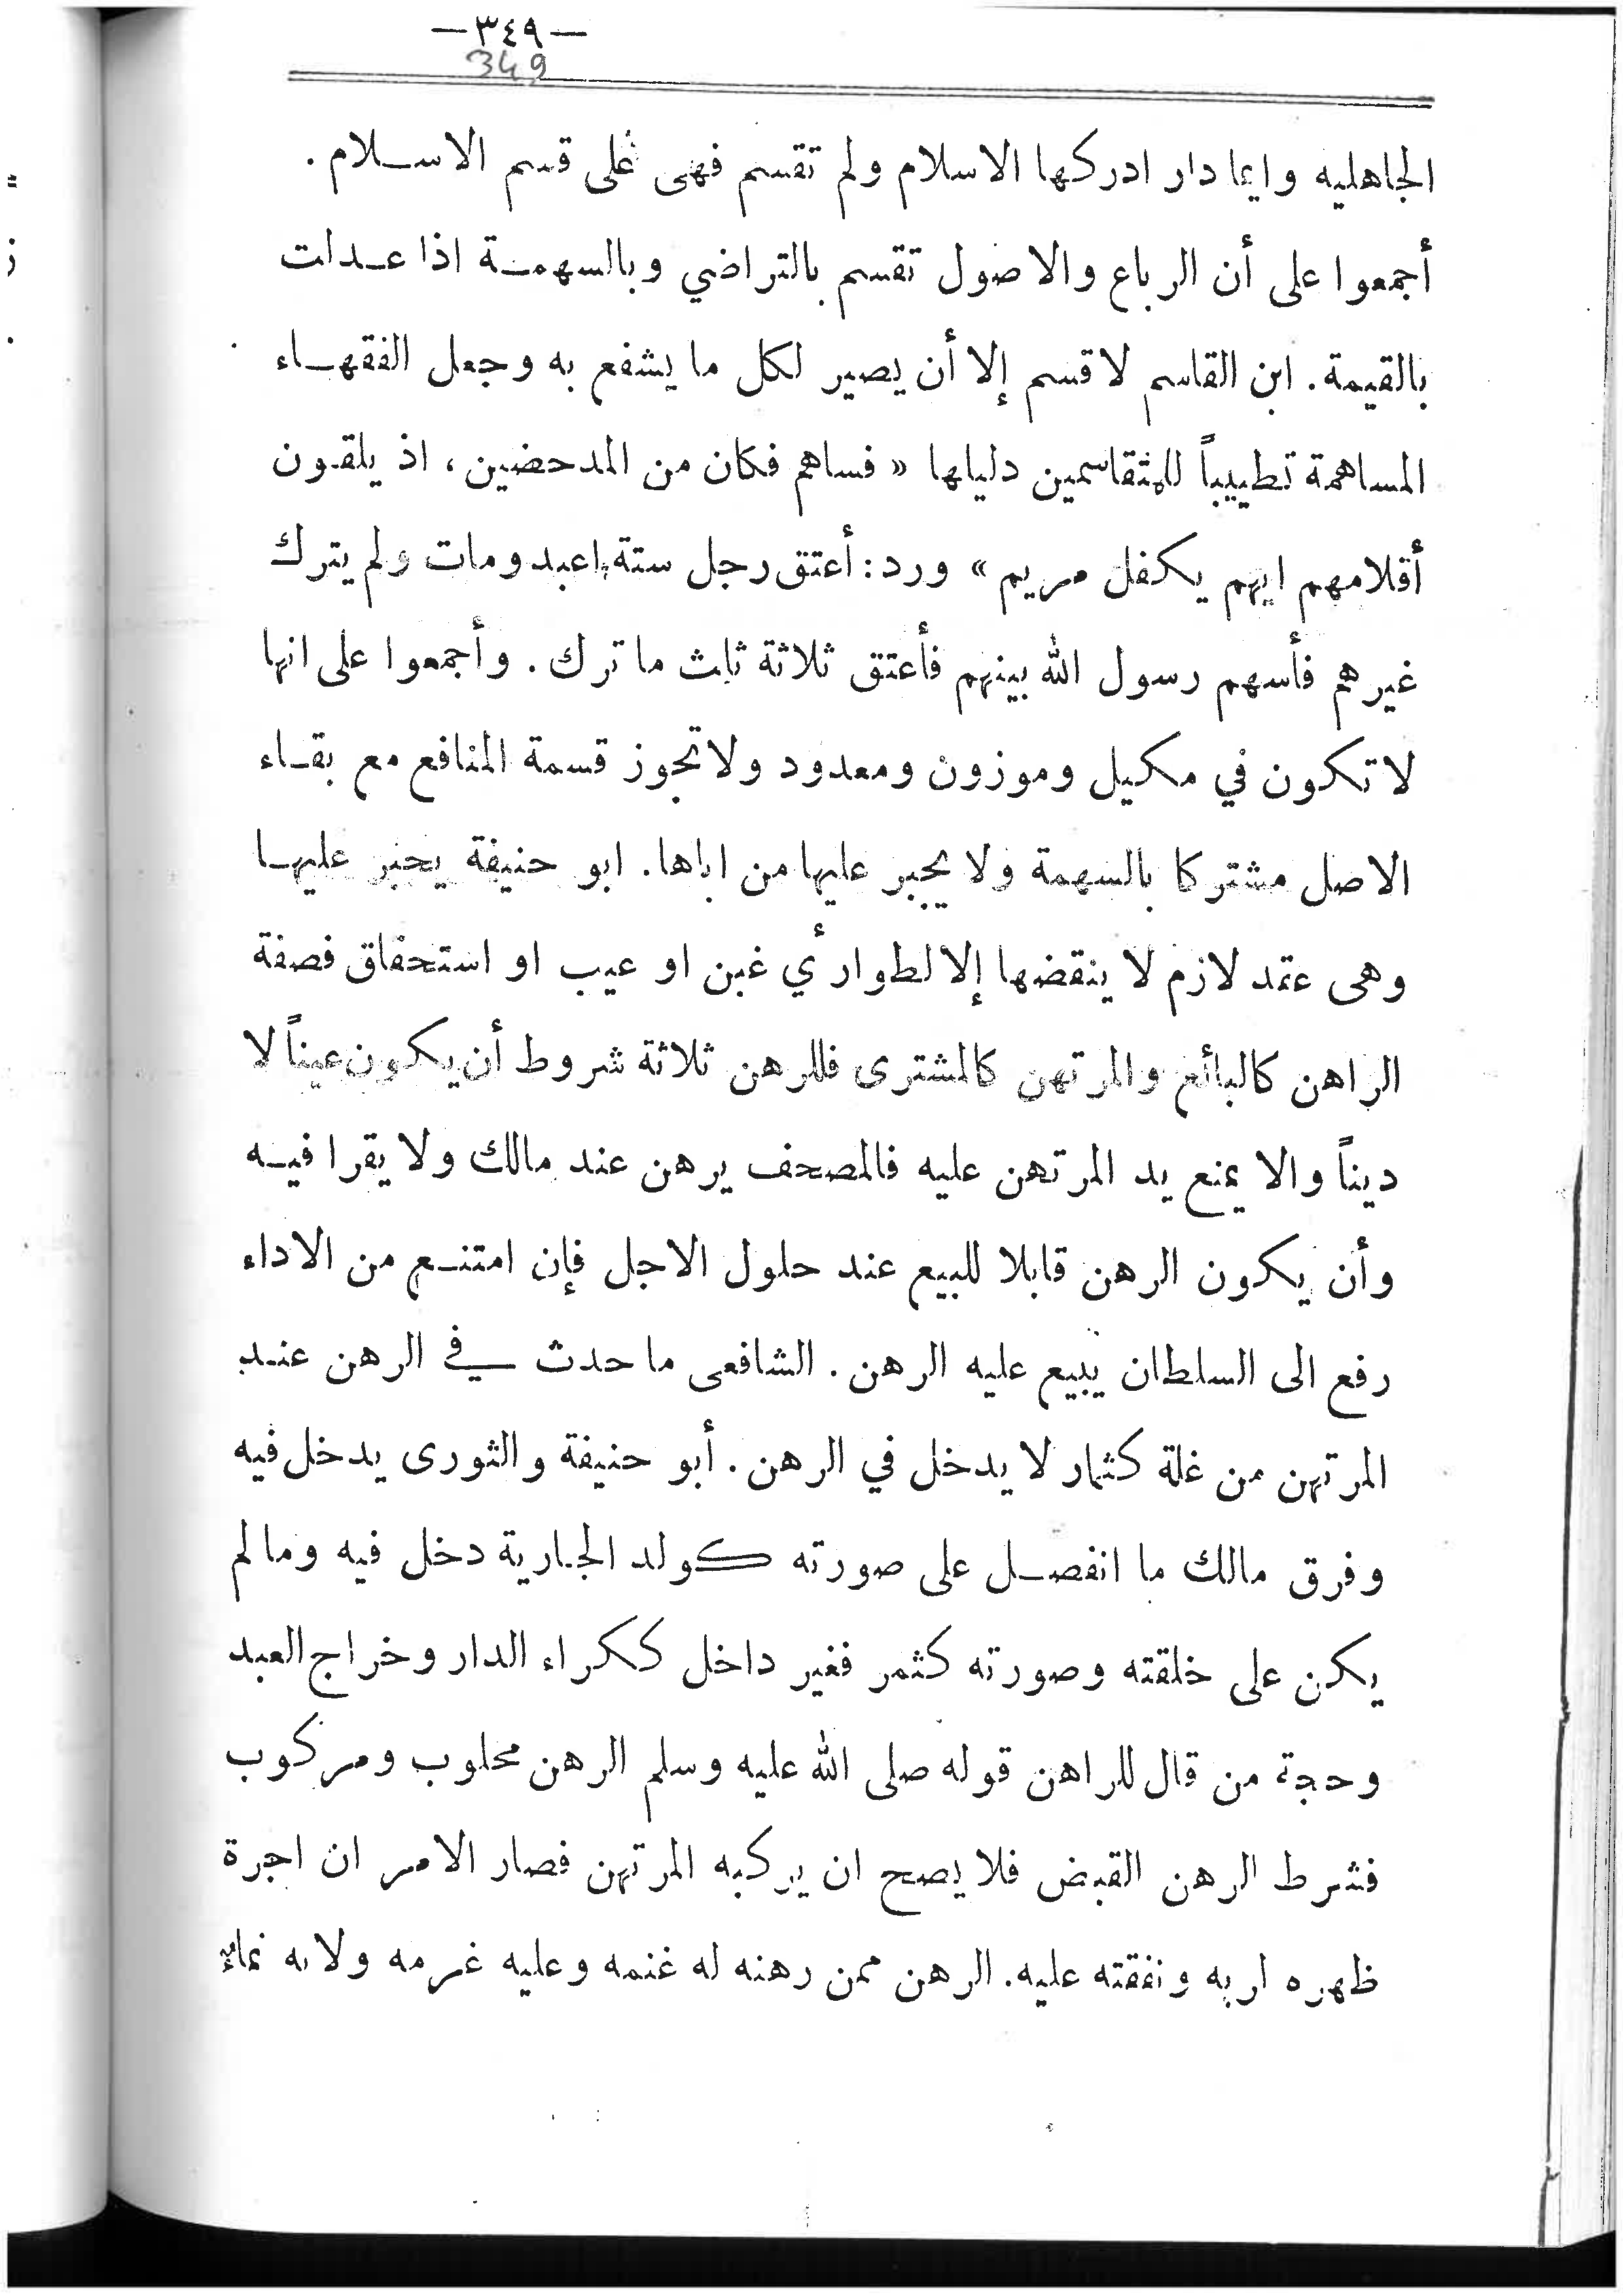 —٣٤٩—
349
الجاهليه وايما دار ادركها الاسلام ولم تقسم فهى على قسم الاسلام .
أجمعوا على أن الرباع والاصول تقسم بالتراضي وبالسهمة اذا عدلت
بالقيمة . ابن القاسم لا قسم إلا أن يصير لكل ما يشفع به وجعل الفقهاء
المساهمة تطييباً للمتقاسمين دليلها « فساهم فكان من المدحضين ، اذ يلقون
أقلامهم ايهم يكفل مريم » ورد : أعتق رجل ستة اعبد ومات ولم يترك
غيرهم فأسهم رسول الله بينهم فأعتق ثلاثة ثلث ما ترك . وأجمعوا على انها
لا تكون في مكيل وموزون ومعدود ولا تجوز قسمة المنافع مع بقاء
الاصل مشتركا بالسهمة ولا يجبر عليها من اباها . ابو حنيفة يجبر عليها
وهى عقد لازم لا ينقضها إلا لطوار أي غبن او عيب او استحقاق فصفة
الراهن كالبائع والمرتهن كالمشترى فللرهن ثلاثة شروط أن يكون عيناً لا
ديناً والا يمنع يد المرتهن عليه فالمصحف يرهن عند مالك ولا يقرا فيه
وأن يكون الرهن قابلا للبيع عند حلول الاجل فإن امتنع من الاداء
رفع الى السلطان يبيع عليه الرهن . الشافعى ما حدث في الرهن عند
المرتهن من غلة كثمار لا يدخل في الرهن . أبو حنيفة والثورى يدخل فيه
وفرق مالك ما انفصل على صورته كولد الجارية دخل فيه وما لم
يكن على خلقته وصورته كثمر فغير داخل ككراء الدار وخراج العبد
وحجة من قال للراهن قوله صلى الله عليه وسلم الرهن محلوب ومركوب
فشرط الرهن القبض فلا يصح ان يركبه المرتهن فصار الامر ان اجرة
ظهره لربه ونفقته عليه . الرهن ممن رهنه له غنمه وعليه غرمه ولانه نماء